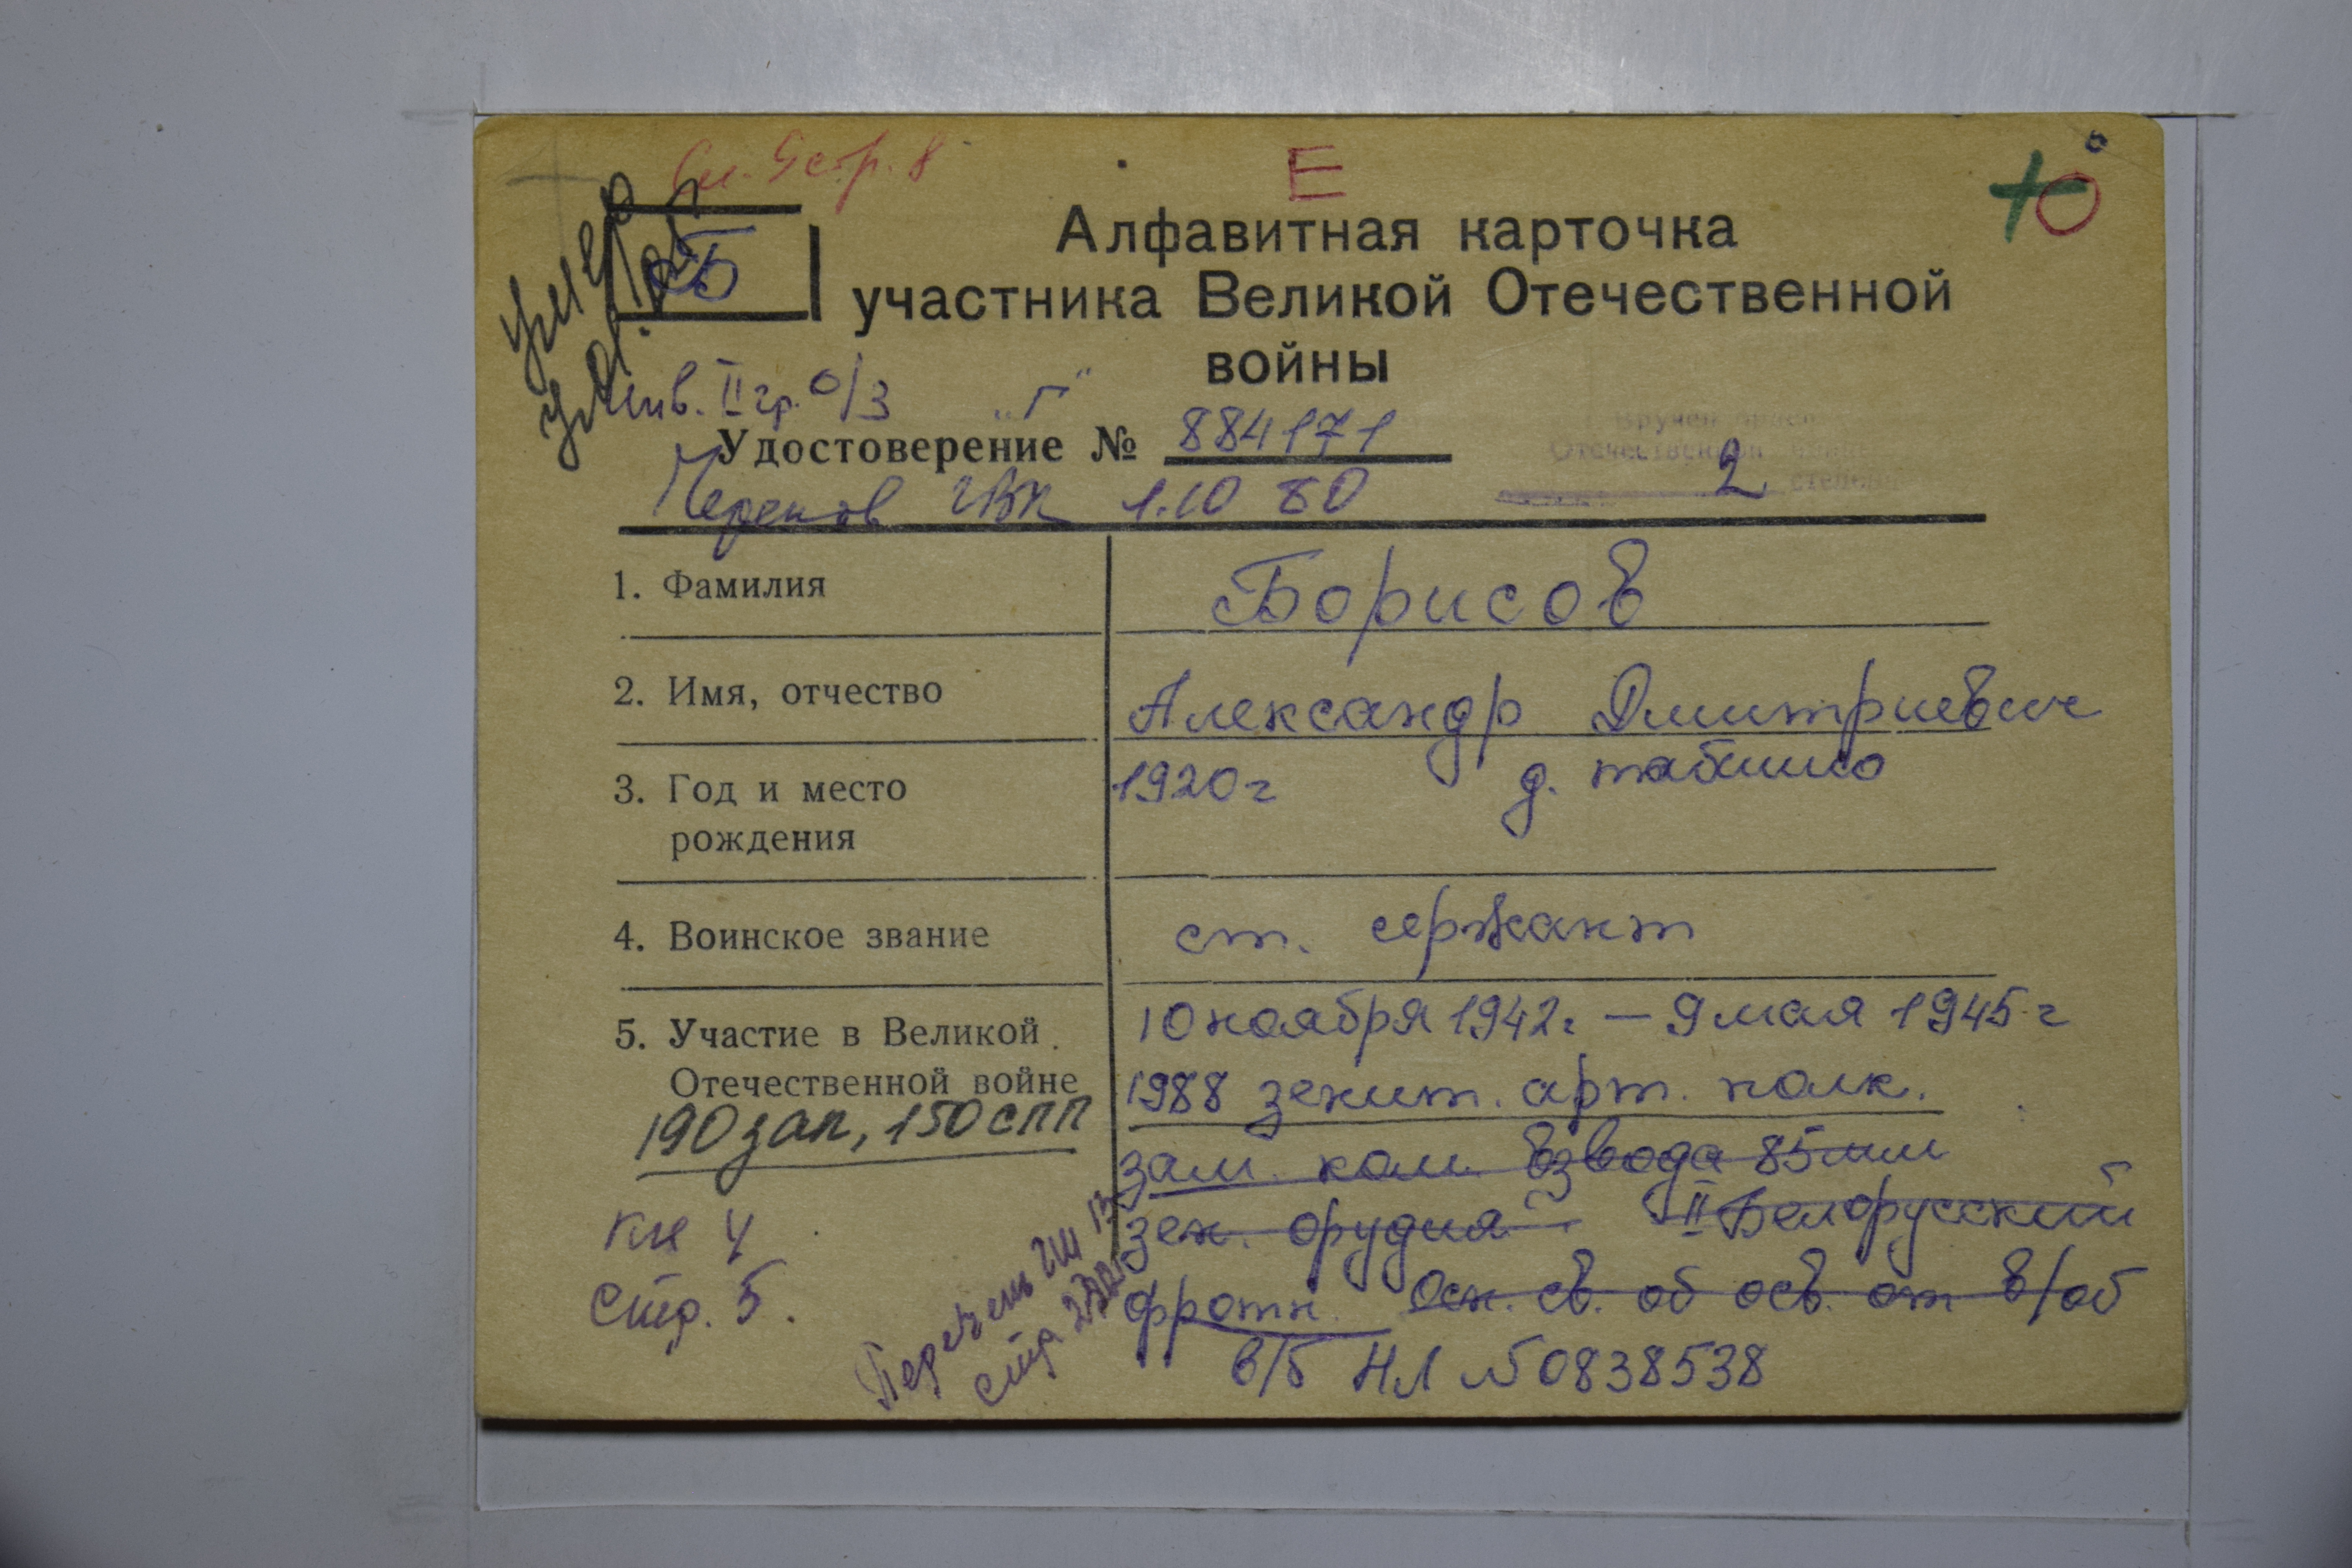 Сп. 9 стр. 8
Е
Ю
умер
Б
Алфавитная карточка
участника Великой Отечественной
войны
инв. II гр. о/з "Г"
Удостоверение № 884171
Вручен орден
Отечественной войны
2 степени
Черепов ГВК 1.10 80
1. Фамилия
Борисов
2. Имя, отчество
Александр Дмитриевич
3. Год и место
рождения
1920 г д.
4. Воинское звание
ст. сержант
5. Участие в Великой
Отечественной войне
10 ноября 1942 г. — 9 мая 1945 г
1988 зенит. арт. полк.
190 зап, 150 СПП
зам. ком. взвода 85 мм
зен. орудия II Белорусский
фротн. Осн. св. об осв. от в/об
в/б НЛ № 0838538
кн 4
стр. 5.
Перечень ГШ 13
стр